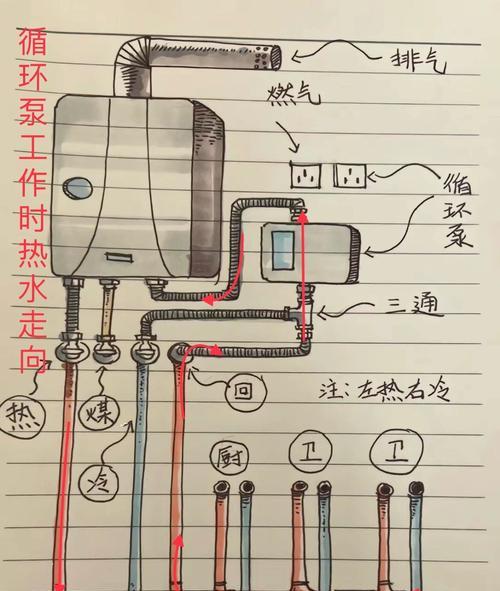 循环泵工作时热水走向
排气
燃气
循环泵
三通
回
注:左热右冷
热
煤
冷
厨
卫
卫